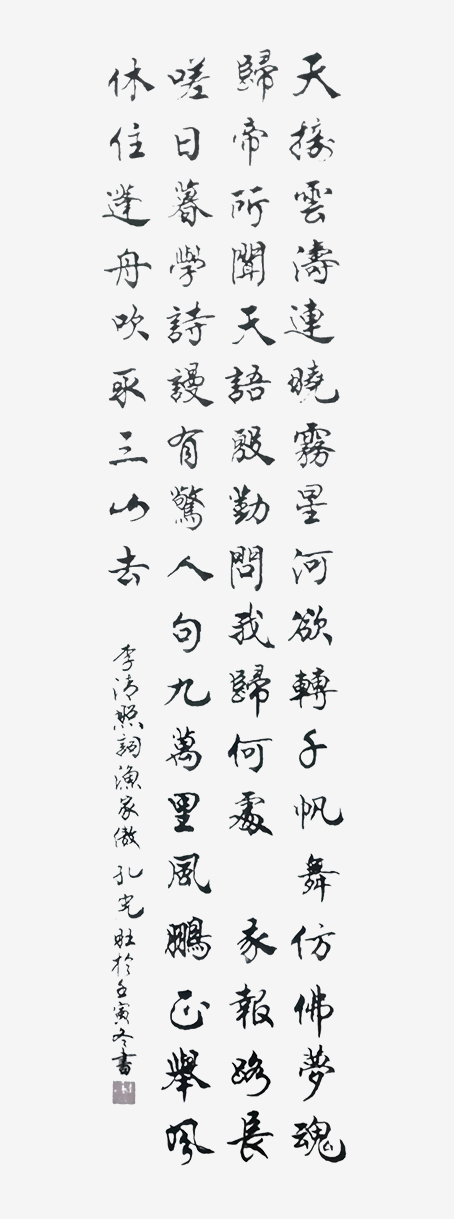 天接雲濤連曉霧星河欲轉千帆舞仿佛夢魂
歸帝所聞天語殷勤問我歸何處 我報路長
嗟日暮學詩謾有驚人句九萬里風鵬正舉風
休住蓬舟吹取三山去
李清照詞漁家傲 孔光旺於壬寅冬書